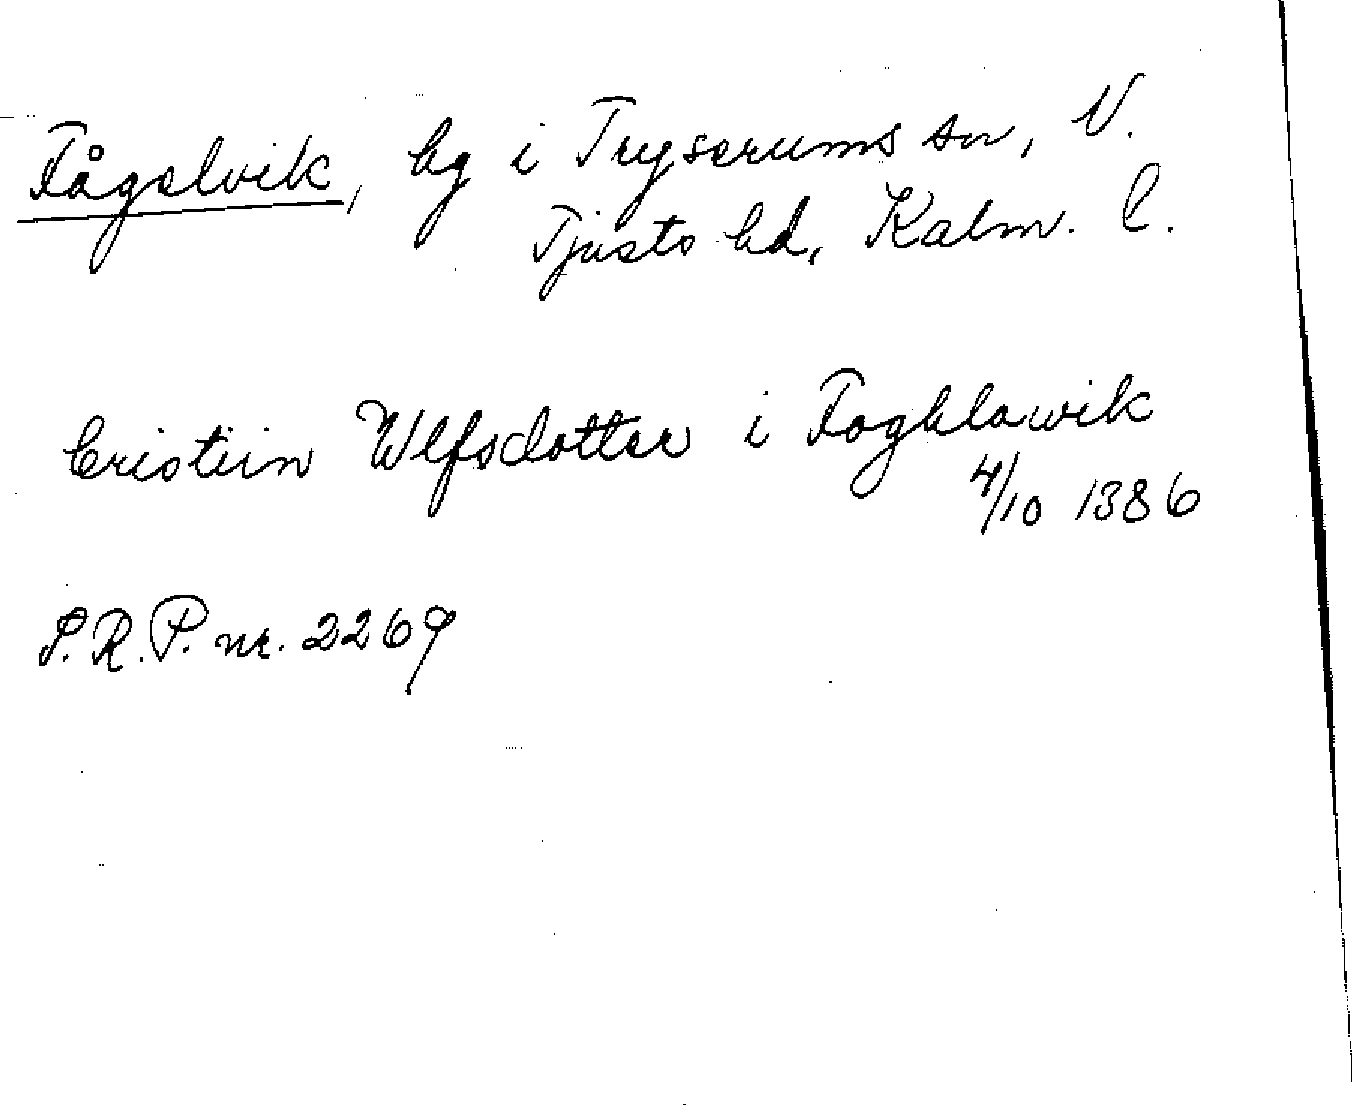 Fågelvik, hg i Tryserums sn, N.
Tjusts hd, Kalm. l.
Cristiin Wlfsdotter i Foghlawik
4/10 1386
S.R.P. nr. 2269